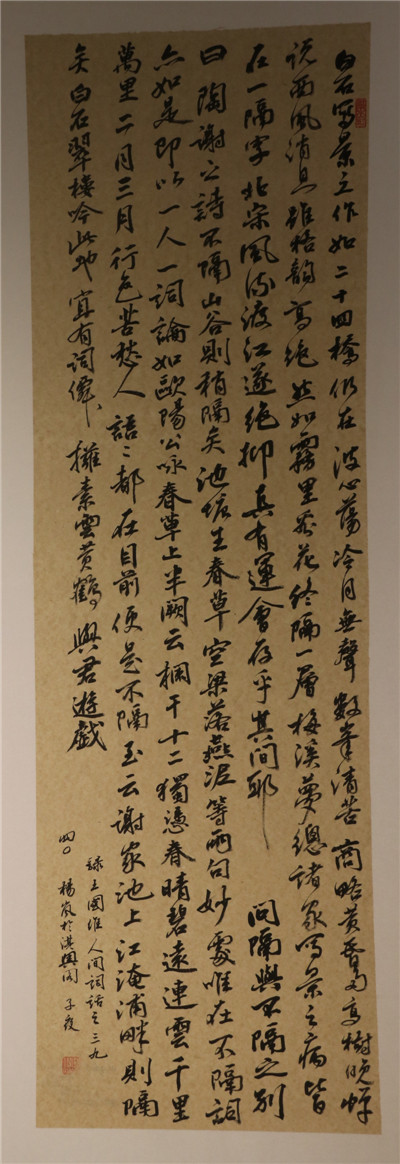 白石写景之作如二十四橋仍在波心蕩冷月無聲數峯清苦商略黄昏雨高樹晚蟬
说西風消息雖格韻高绝然如霧里看花终隔一層梅溪夢窗诸家写景之病皆
在一隔字北宋風流渡江遂绝抑真有運會存乎其间耶 问隔與不隔之别
曰陶謝之詩不隔山谷則稍隔矣池塘生春草空梁落燕泥等兩句妙處唯在不隔詞
亦如是即以一人一詞論如歐陽公咏春草上半阙云栏干十二獨憑春晴碧遠連雲千里
萬里二月三月行色苦愁人語〻都在目前便是不隔至云謝家池上江淹浦畔則隔
矣白石翠楼吟此地宜有詞仙擁素雲黄鶴與君遊戲
録王國维人间詞话之三九
四〇 楊嵐於淇興阁子夜